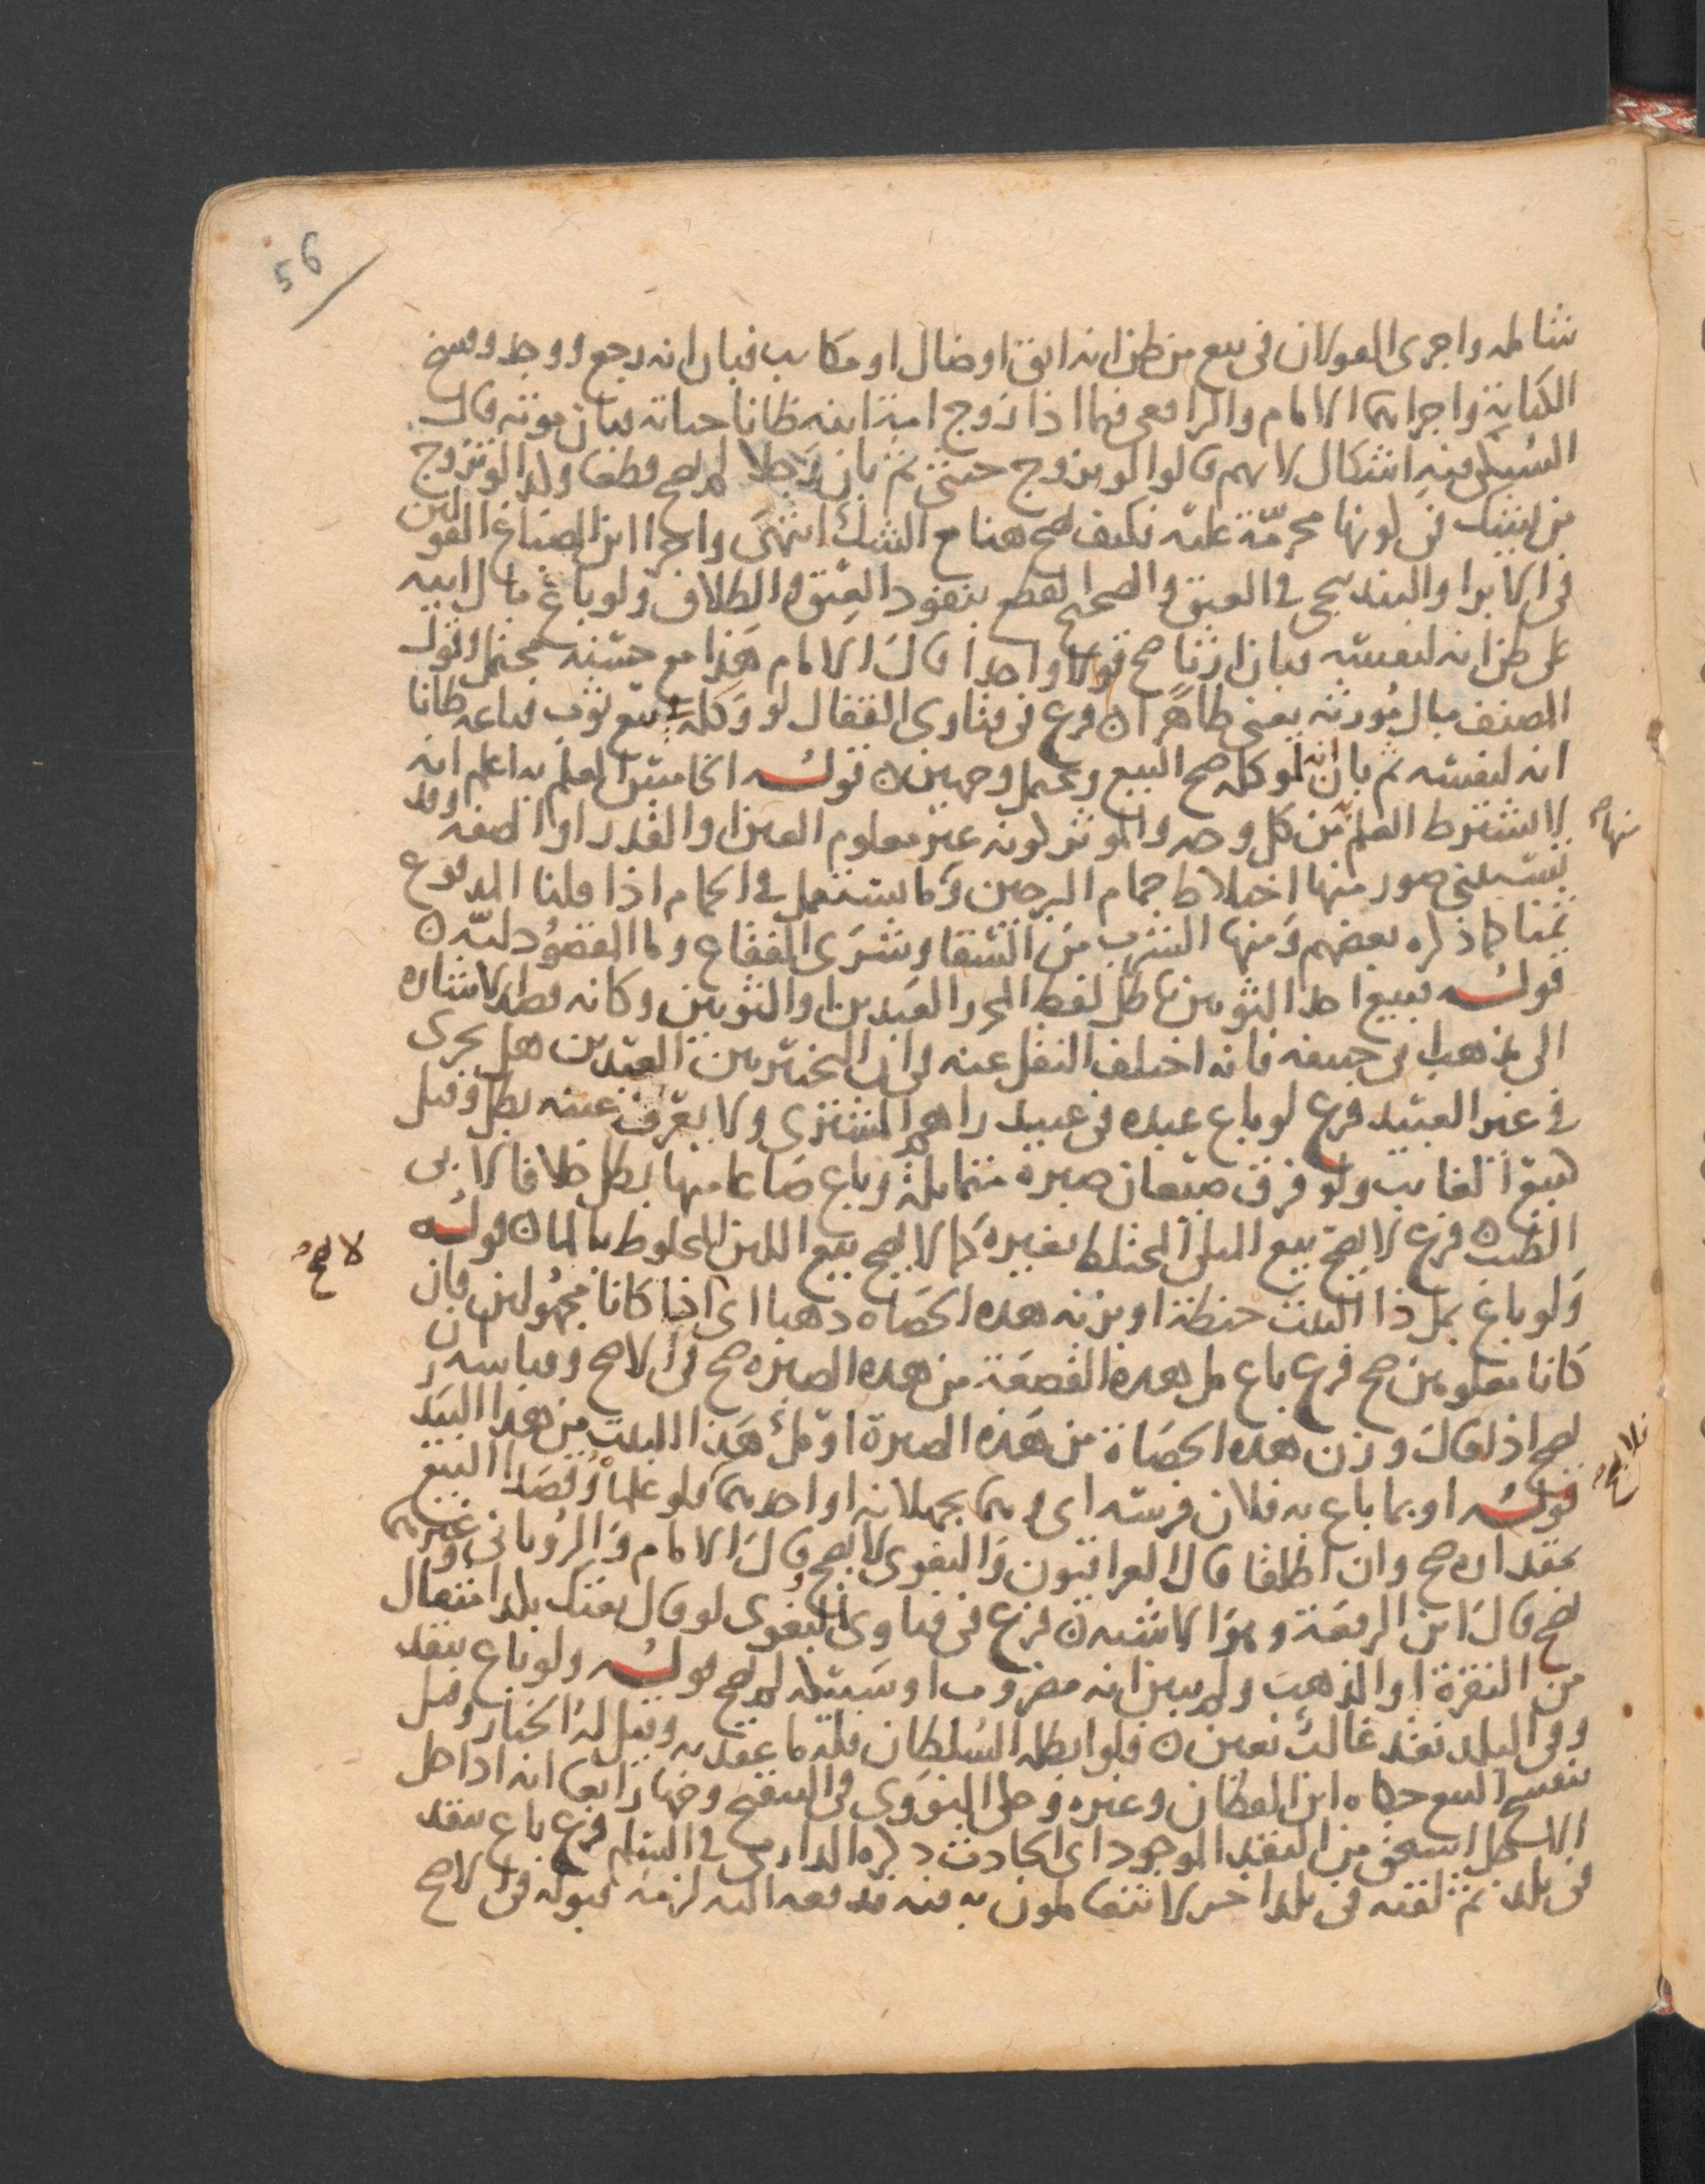 56
شامله واجرى القولان فى بيع من ظن انه ابق او ضال او مكاتب فبان انه رجع ووجد وفسخ
الكتابة واجراهما الامام والرافعى فيما اذا زوج امة ابيه ظانا حياته فبان موته قال
السبكى وفيه اشكال لانهم قالوا لو تزوج خنثى ثم بان رجلا لم يصح قطعا وكذا لو تزوج
من يشك فى كونها محرمة عليه فكيف يصح هنا مع الشك انتهى واجرا ابن الصباغ القولين
فى الابرا والبندنيجى فى العتق والصحيح القطع بنفوذ العتق والطلاق ولو باع مال ابيه
على ظن انه لنفسه فبان ارثا صح قولا واحدا قال الامام هذا مع حسنه محتمل وقول
المصنف مال مورثه يعنى ظاهرا ن فرع فى فتاوى القفال لو وكله ببيع ثوب فباعه ظانا
انه لنفسه ثم بان انه لموكله صح البيع ويحتمل وجهين ن قوله الخامس العلم به اعلم انه
لا يشترط العلم به من كل وجه والموثر كونه غير معلوم العين او القدر او الصفة وقد
منها صح
يستثنى صور منها اختلاط حمام البرجين وما يستعمل فى الحمام اذا قلنا المدفوع
ثمنا كما ذكره بعضهم ومنها الشرب من السقا وشرى الفقاع وما المقصود لبه ن
قوله فبيع احد الثوبين باطل لفظ المحرر العبدين والثوبين وكانه قصد الاشارة
الى مذهب ابى حنيفه فانه اختلف النقل عنه فى ان التخيير بين العبدين هل يجرى
فى غير العبيد فرع لو باع عبده فى عبيد راهم المشترى ولا يعرف عينه بطل وقيل
كبيع الغايب ولو فرق صيعان صبرة متماثلة وباع صاعا منها بطل خلافا لابى
الطيب ن فرع لا يصح بيع اللبن المختلط بغيره كما لا يصح بيع اللبن المخلوط بالما ن قوله
لا صح
ولو باع بمل ذا البيت حنطة او بزنة هذه الحصاة ذهبا اى اذا كانا مجهولين فان
كانا معلومين صح فرع باع مل هذه القصعة من هذه الصبرة صح فى الاصح وقياسه ان
يصح اذا قال وزن هذه الحصاة من هذه الصبرة او مل هذا البيت من هذا البيد
قوله او بما باع به فلان فرسه اى وهما يجهلانه او احدهما فلو علما وقصدا البيع
فلا صح
بمقداره صح وان اطلقا قال العراقيون والبغوى لا يصح وقال الامام والرويانى وغيرهما
يصح قال ابن الرفعة وهو الاشبه ن فرع فى فتاوى البغوى لو قال بعتك بكذا مثقال
من النقرة او الذهب ولم يبين انه مضروب او سبيكه لم يصح قوله ولو باع بنقد
وفى البلد نقد غالب تعين ن فلو ابطله السلطان فله ما عقد به وقيل له الخيار وقيل
ينفسخ البيع حكاه ابن القطان وغيره وحكى النووى فى التنقيح وجها رابعا انه اذا حل
الاجل استحق من النقد الموجود اى الحادث ذكره الدارمى فى السلم فرع باع بنقد
فى بلد ثم لقيه فى بلد اخر لا يتعاملون به فيه فدفعه اليه لزمه قبوله فى الاصح